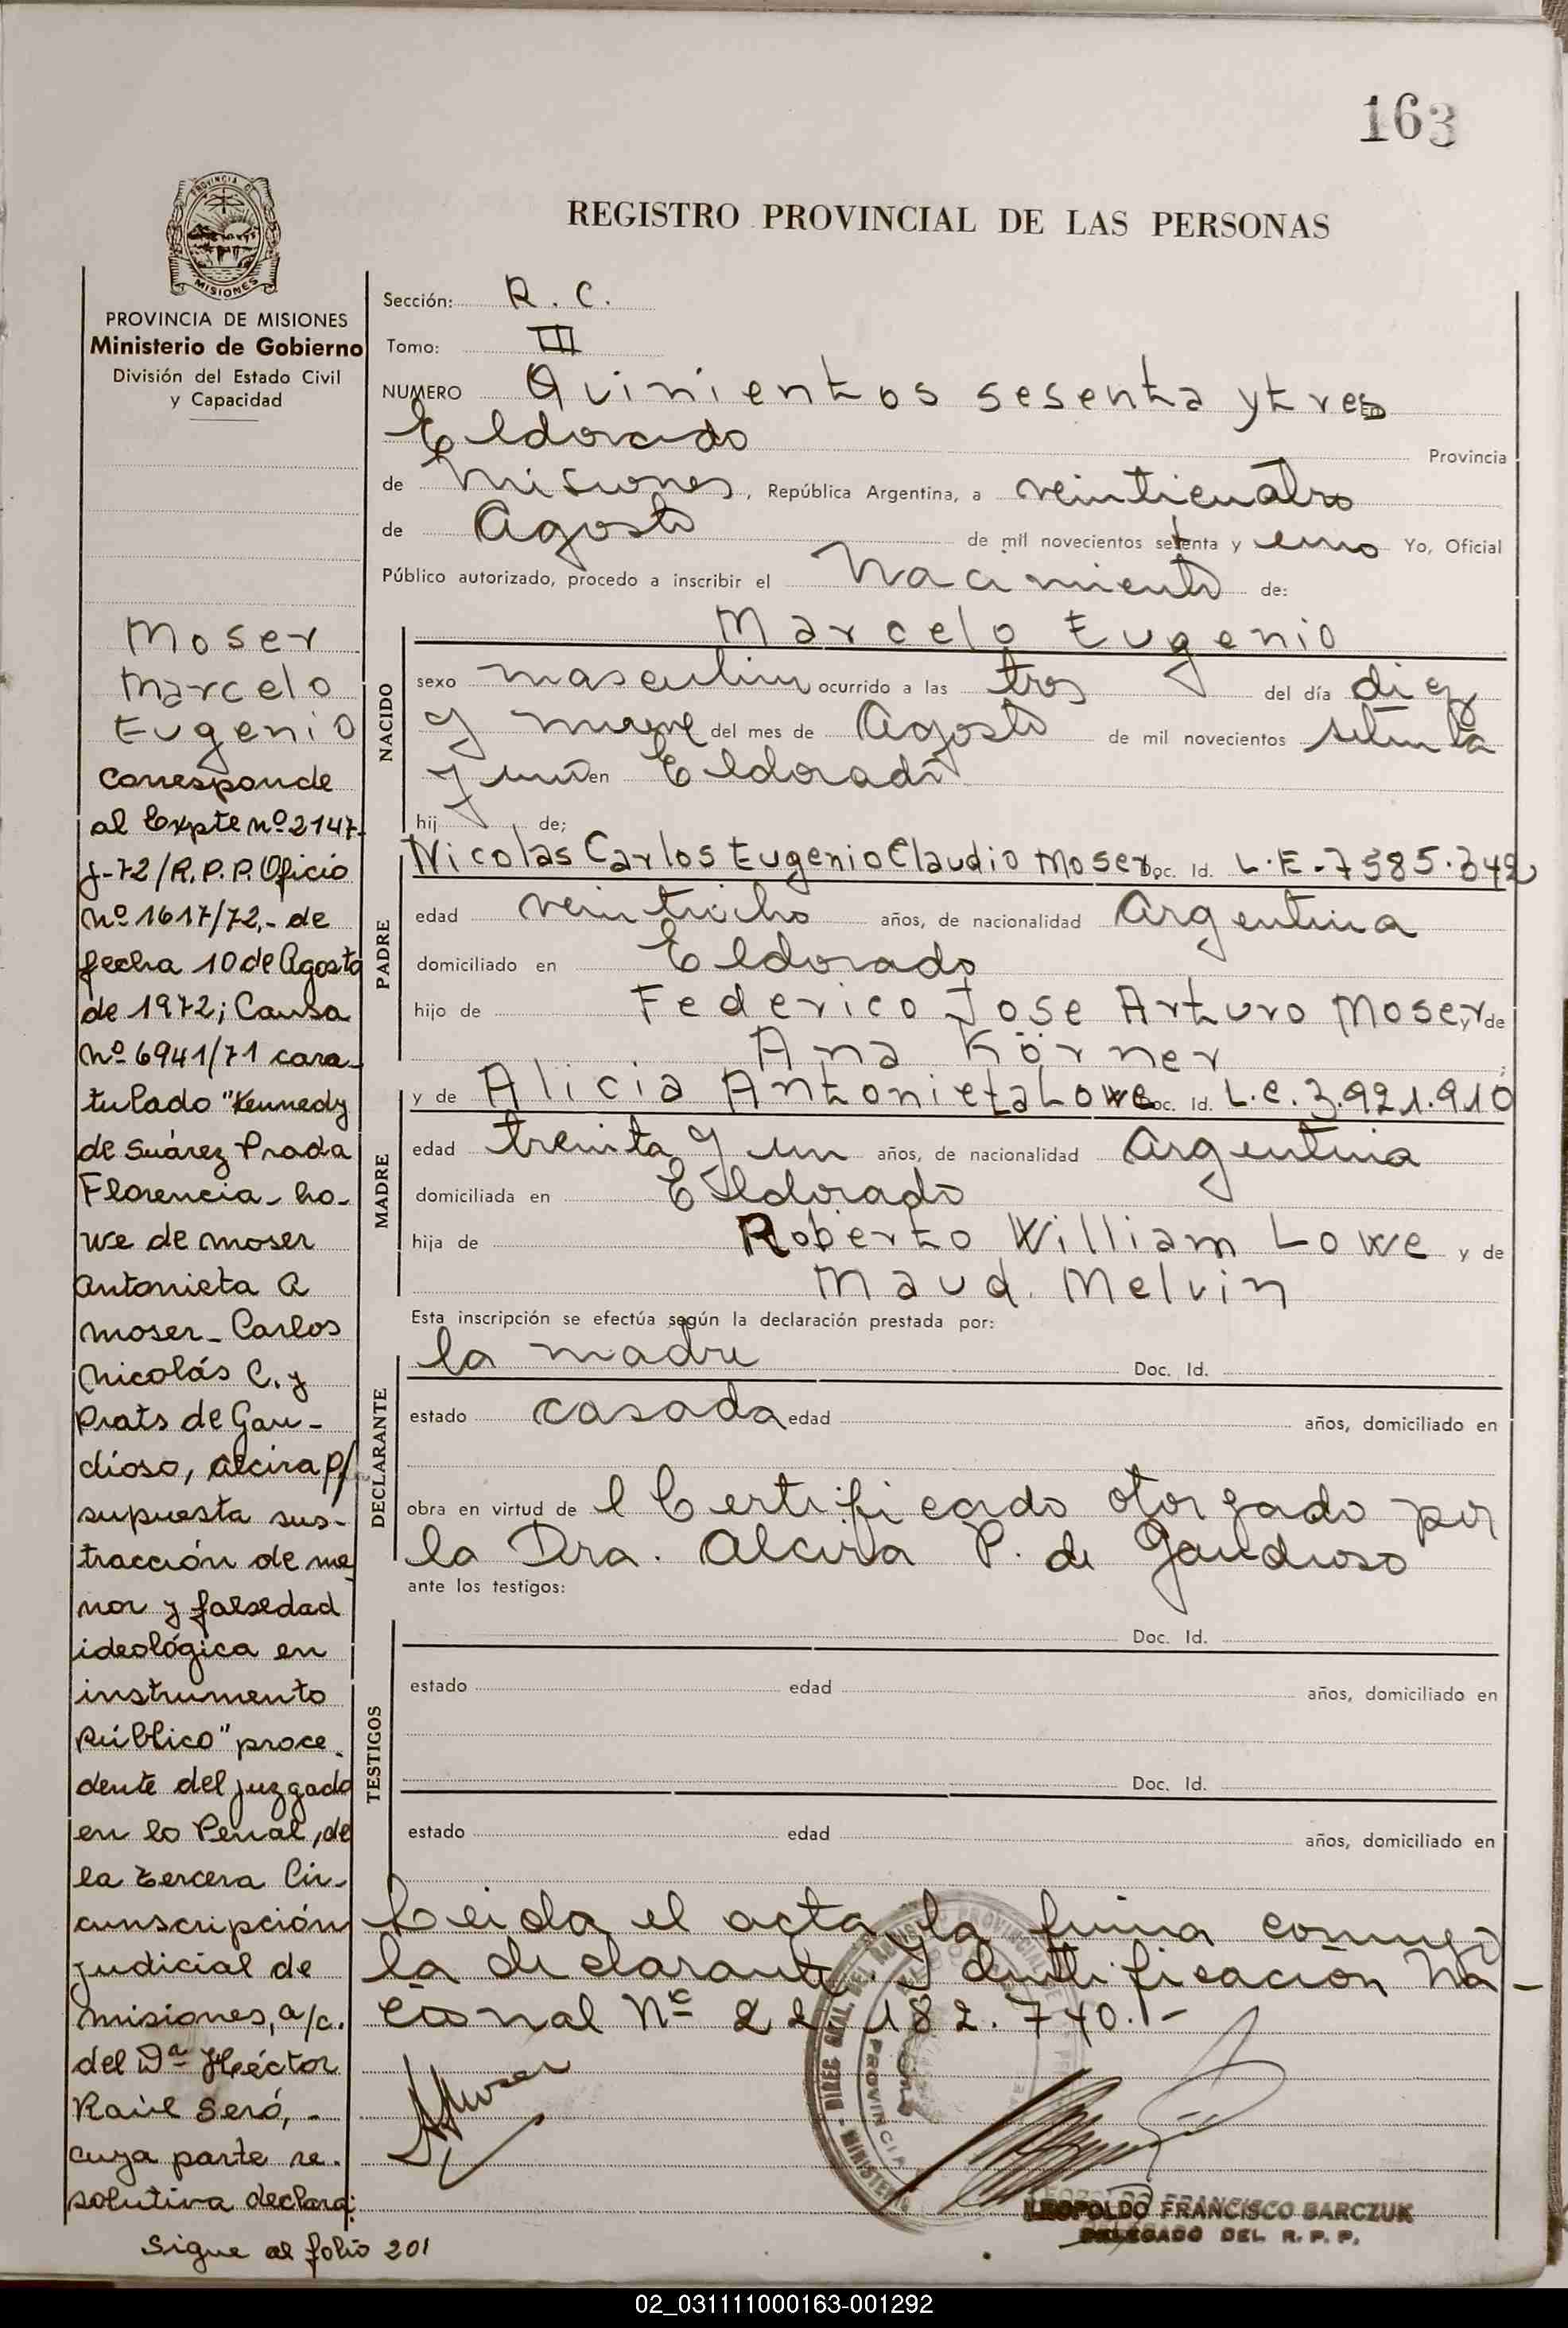 163
REGISTRO PROVINCIAL DE LAS PERSONAS
PROVINCIA DE MISIONES
Ministerio de Gobierno
División del Estado Civil
y Capacidad
Moser
Marcelo
Eugenio
Corresponde
al Expte nº 2147-
J-72/R.P.P. Oficio
nº 1617/72,- de
fecha 10 de Agosto
de 1972; Causa
nº 6941/71 cara-
tulado "Kennedy
de Suárez Prada
Florencia - Lo-
we de Moser
Antonieta A
Moser - Carlos
Nicolás C. y
Prats de Gau-
dioso, Alcira p/
supuesta sus-
tracción de me
nor y falsedad
ideológica en
instrumento
Público" proce-
dente del juzgado
en lo Penal, de
la tercera Cir-
cunscripción
judicial de
Misiones, a/c.
del Dr Héctor
Raúl Seró, -
cuya parte re-
solutiva declara:
Sigue al folio 201
Sección: R. C.
Tomo: III
NUMERO Quinientos sesenta y tres En
Eldorado Provincia
de Misiones, República Argentina, a veinticuatro
de Agosto de mil novecientos setenta y uno Yo, Oficial
Público autorizado, procedo a inscribir el Nacimiento de:
NACIDO
Marcelo Eugenio
sexo masculino ocurrido a las tres del día diez
y nueve del mes de Agosto de mil novecientos setenta
y uno en Eldorado
hij de;
PADRE
Nicolas Carlos Eugenio Claudio Moser Doc. Id. L.E-7585.342
edad veintiocho años, de nacionalidad Argentina
domiciliado en Eldorado
hijo de Federico Jose Arturo Moser y de
Ana Körner
MADRE
y de Alicia Antonieta Lowe Doc. Id. L.C. 3.921.910
edad treinta y un años, de nacionalidad Argentina
domiciliada en Eldorado
hija de Roberto William Lowe y de
Maud Melvin
Esta inscripción se efectúa según la declaración prestada por:
DECLARANTE
la madre Doc. Id.
estado casada edad años, domiciliado en
obra en virtud de l Certificado otorgado por
la Dra. Alcira P. de Gaudioso
ante los testigos:
TESTIGOS
Doc. Id.
estado edad años, domiciliado en
Doc. Id.
estado edad años, domiciliado en
Leida el acta, la firma conmigo
la declarante. Identificación Na-
cional Nº 22.182.740.-
AMoser
LEOPOLDO FRANCISCO BARCZUK
DELEGADO DEL R. P. P.
02_031111000163-001292